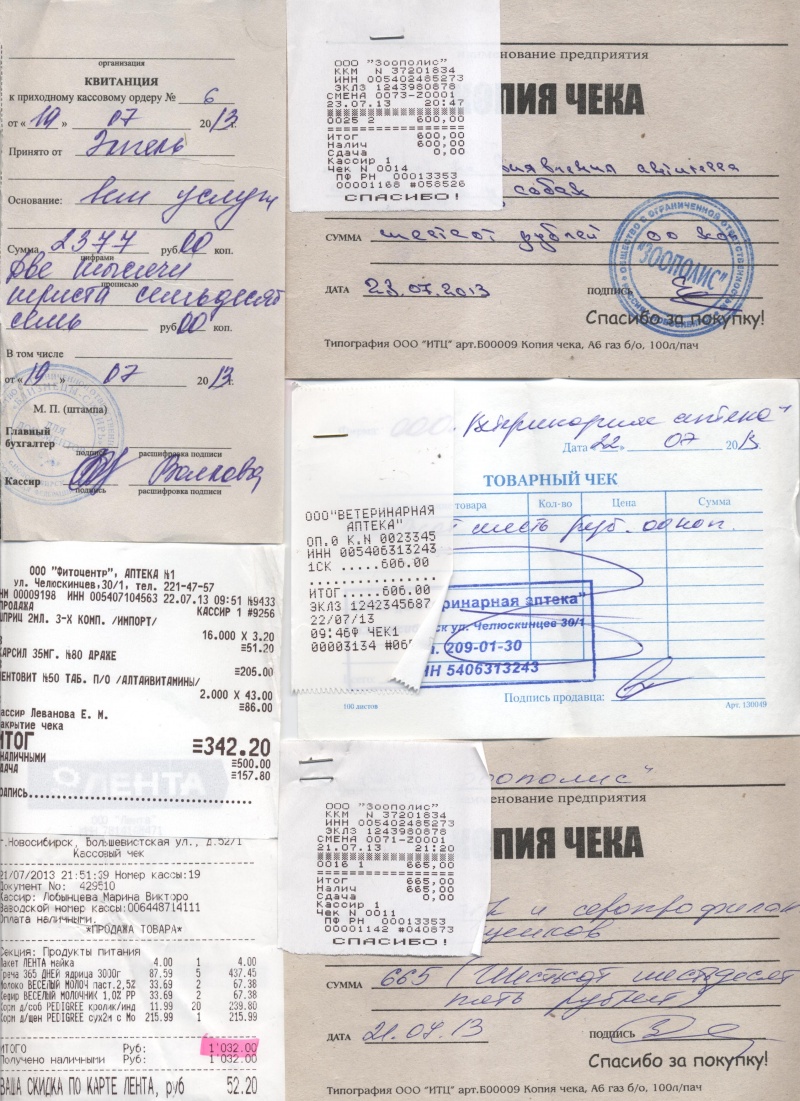 организация
КВИТАНЦИЯ
к приходному кассовому ордеру № 6
от « 19 » 07 2013 г.
Принято от Эгель
Основание: вет услуги
Сумма 2377 руб. 00 коп.
цифрами
две тысячи
прописью
триста семьдесят
семь руб. 00 коп.
В том числе
от « 19 » 07 2013.
М. П. (штампа)
Главный
бухгалтер
подпись расшифровка подписи
Кассир Волкова
подпись расшифровка подписи
ООО "Зоополис"
ККМ N 37201834
ИНН 005402485273
ЭКЛЗ 1243980878
СМЕНА 0073-Z0001
23.07.13 20:47
0025 2 600,00
Итог 600,00
Налич 600,00
Сдача 0,00
Кассир 1
Чек N 0014
ПФ РН 00013353
00001168 #058526
СПАСИБО!
нование предприятия
ОПИЯ ЧЕКА
собак
СУММА шестсот рублей 00 коп
ОБЩЕСТВО С ОГРАНИЧЕННОЙ ОТВЕТСТВЕННОСТЬЮ
"ЗООПОЛИС"
ДАТА 23.07.2013 ПОДПИСЬ
Спасибо за покупку!
Типография ООО "ИТЦ" арт.Б00009 Копия чека, А6 газ б/о, 100л/пач
ООО "Ветеринарная аптека"
Дата 22 07 2013
ТОВАРНЫЙ ЧЕК
товара Кол-во Цена Сумма
шесть руб. 00 коп.
ООО"ВЕТЕРИНАРНАЯ
АПТЕКА"
ОП.0 К.N 0023345
ИНН 005406313243
1СК .....606.00
ИТОГ....606.00
ЭКЛЗ 1242345687
22/07/13
09:46Ф ЧЕК1
00003134 #06
еринарная аптека"
ск ул. Челюскинцев 30/1
. 209-01-30
НН 5406313243
Подпись продавца:
100 листов Арт. 130049
ООО "Фитоцентр", АПТЕКА №1
ул. Челюскинцев,30/1, тел. 221-47-57
НМ 00009198 ИНН 005407104563 22.07.13 09:51 №9433
ПРОДАЖА КАССИР 1 #9256
ШПРИЦ 2МЛ. 3-Х КОМП. /ИМПОРТ/
16.000 X 3.20
≡51.20
КАРСИЛ 35МГ. №80 ДРАЖЕ
≡205.00
ПЕНТОВИТ №50 ТАБ. П/О /АЛТАЙВИТАМИНЫ/
2.000 X 43.00
≡86.00
ассир Леванова Е. М.
акрытие чека
ИТОГ ≡342.20
НАЛИЧНЫМИ ≡500.00
ДАЧА ≡157.80
ОДПИСЬ
ЛЕНТА
г.Новосибирск, Большевистская ул., д.52/1
Кассовый чек
21/07/2013 21:51:39 Номер кассы:19
Документ No: 429510
Кассир: Лобынцева Марина Викторо
Заводской номер кассы:006448714111
Оплата наличными.
*ПРОДАЖА ТОВАРА*
Секция: Продукты питания
Пакет ЛЕНТА майка 4.00 1 4.00
Греча 365 ДНЕЙ ядрица 3000г 87.59 5 437.45
Молоко ВЕСЕЛЫЙ МОЛОЧ паст.2,5% 33.69 2 67.38
Кефир ВЕСЕЛЫЙ МОЛОЧНИК 1,0% РР 33.69 2 67.38
Корм д/соб PEDIGREE кролик/инд 11.99 20 239.80
Корм д/щен PEDIGREE сух2м с Мо 215.99 1 215.99
ИТОГО Руб: 1'032.00
Получено наличными Руб: 1'032.00
ВАША СКИДКА ПО КАРТЕ ЛЕНТА, руб 52.20
Зоополис"
ООО "Зоополис"
ККМ N 37201834
ИНН 005402485273
ЭКЛЗ 1243980878
СМЕНА 0071-Z0001
21.07.13 21:20
0016 1 665,00
Итог 665,00
Налич 665,00
Сдача 0,00
Кассир 1
Чек N 0011
ПФ РН 00013353
00001142 #040873
СПАСИБО!
менование предприятия
ОПИЯ ЧЕКА
и серопрофилак
щенков
СУММА 665 (Шестьсот шестьдесят
пять рублей)
ДАТА 21.07 13 ПОДПИСЬ
Спасибо за покупку!
Типография ООО "ИТЦ" арт.Б00009 Копия чека, А6 газ б/о, 100л/пач